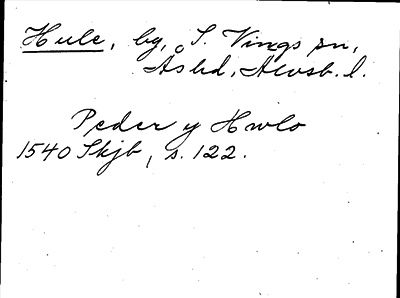 Hule, by, S. Vings sn,
Åshd, Älvsb. l.
Peder y Hwlo
1540 Skjb, s. 122.